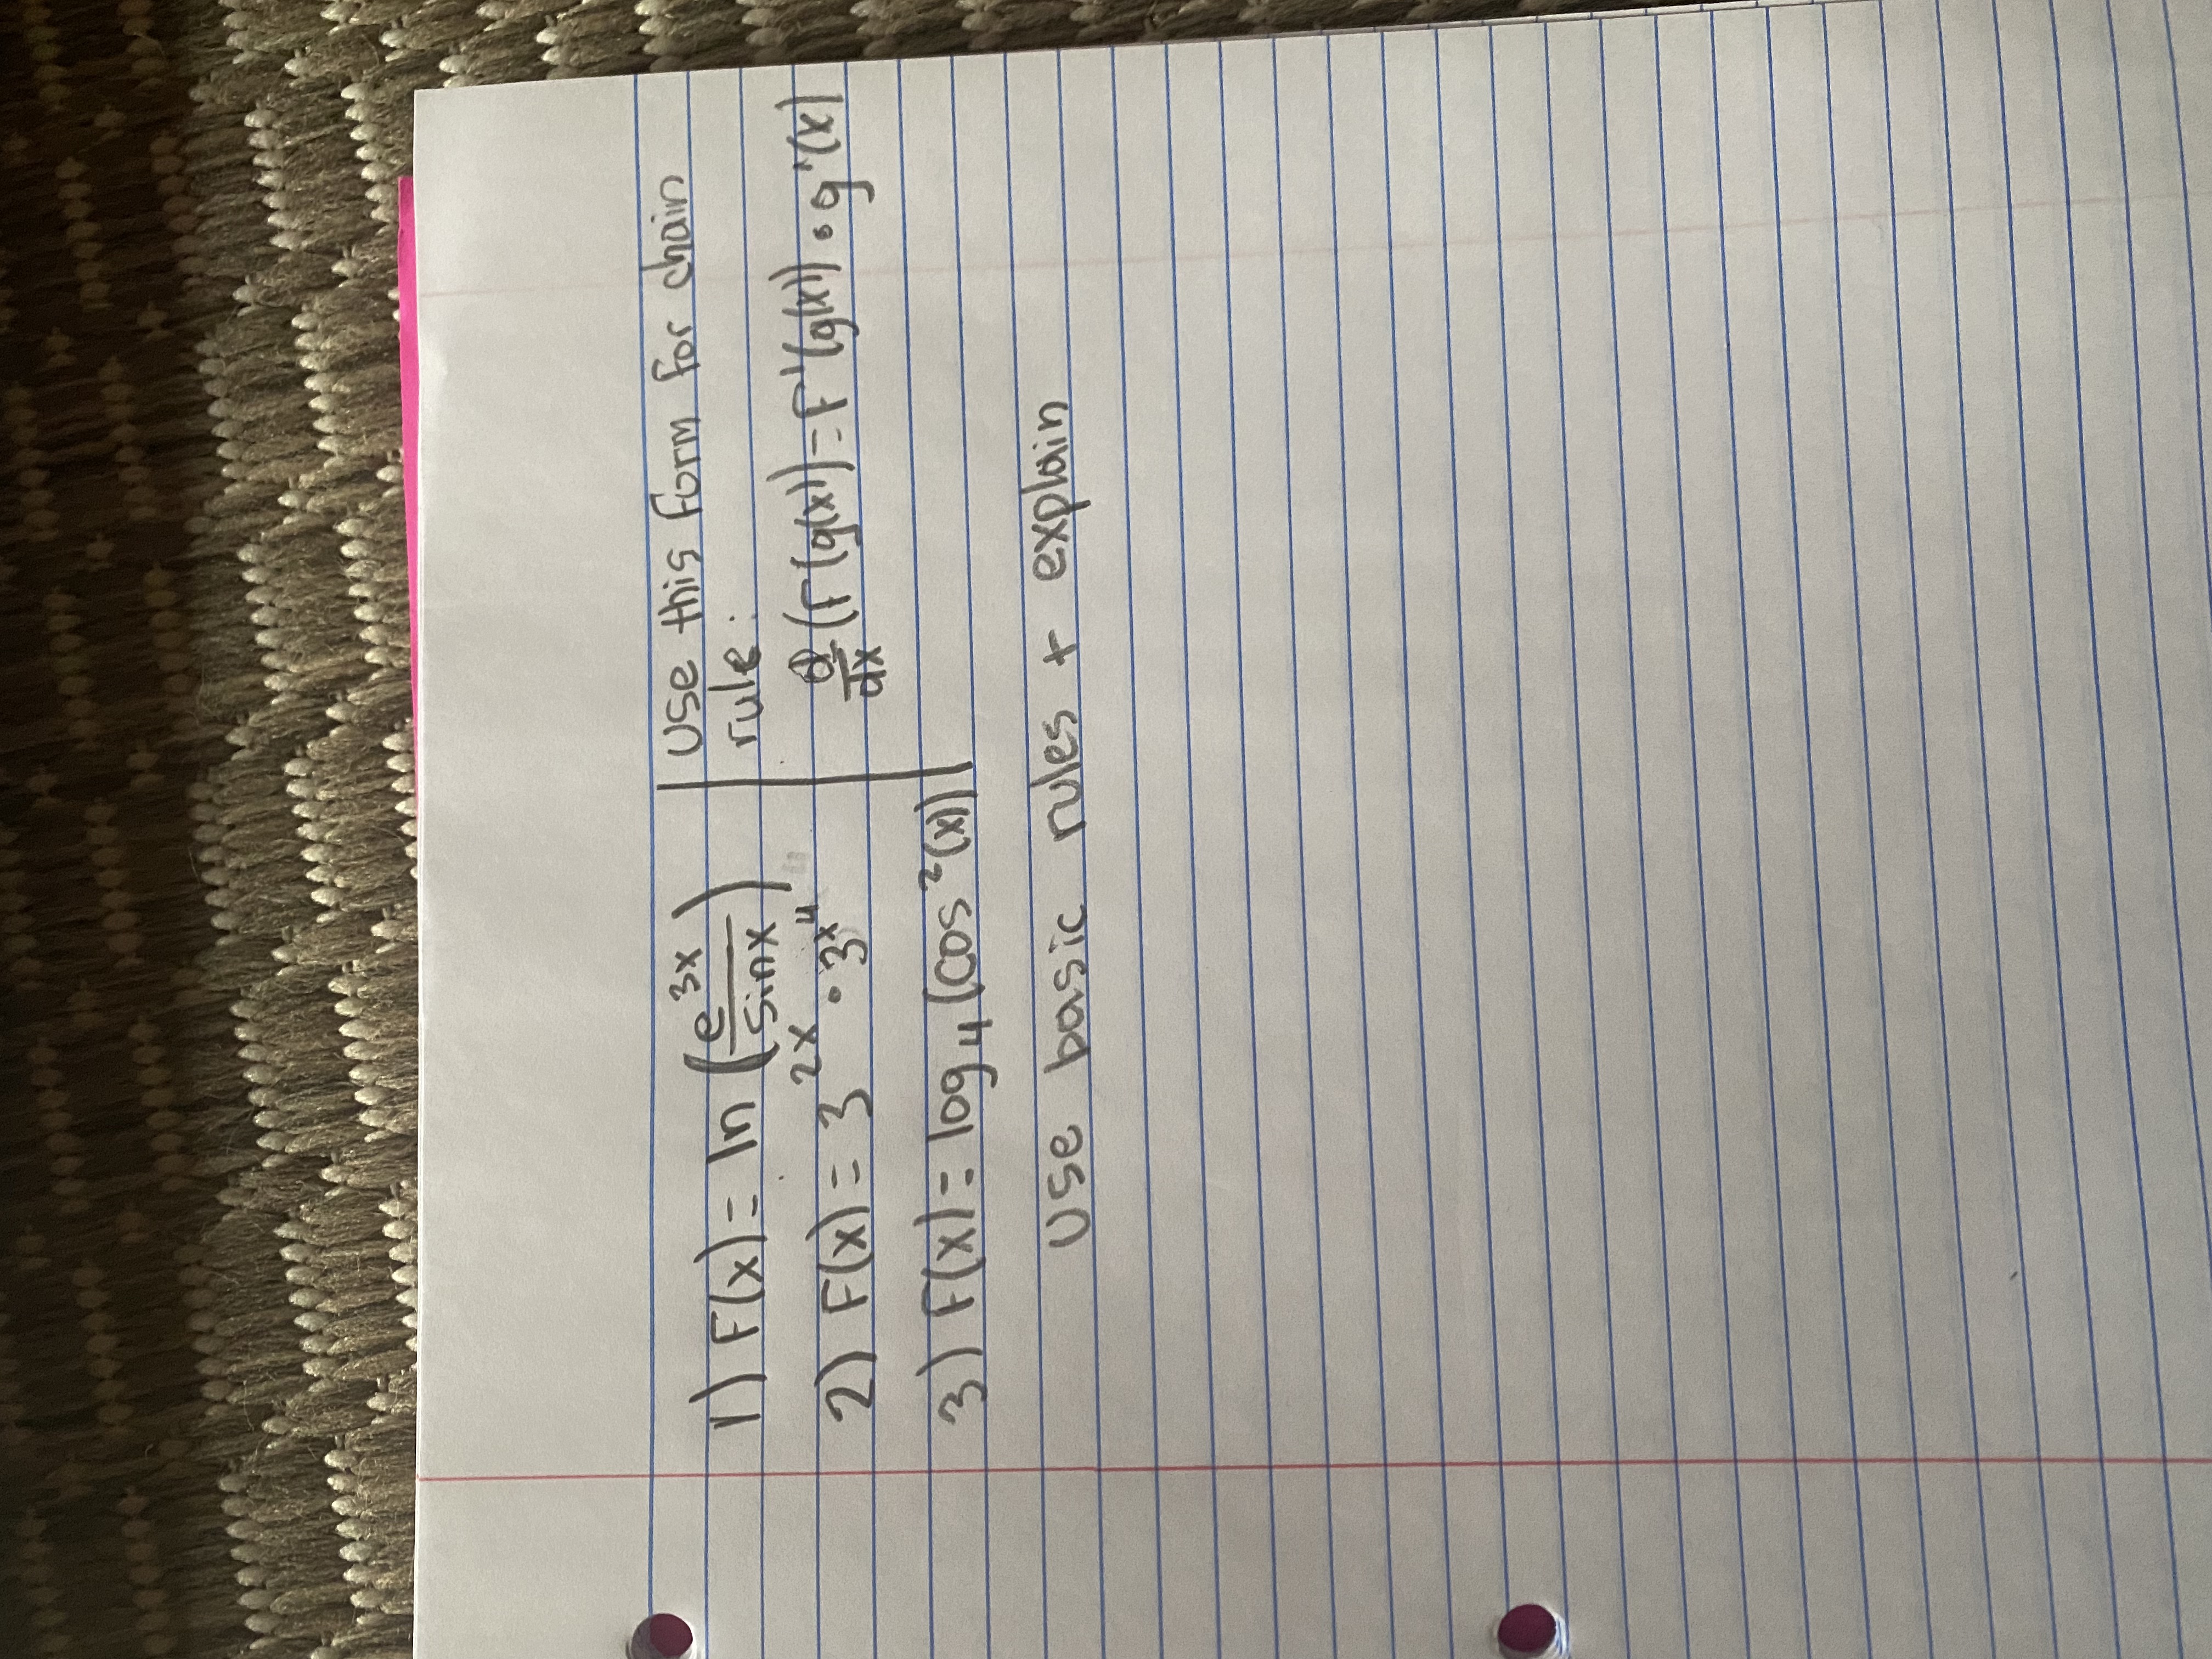 1) F(x) = ln (e^3x / sinx)
2) F(x) = 3^2x • 3^x^4
3) F(x) = log₄ (cos²(x))
Use this form for chain
rule:
d/dx (F(g(x)) = F'(g(x)) • g'(x)
Use basic rules + explain